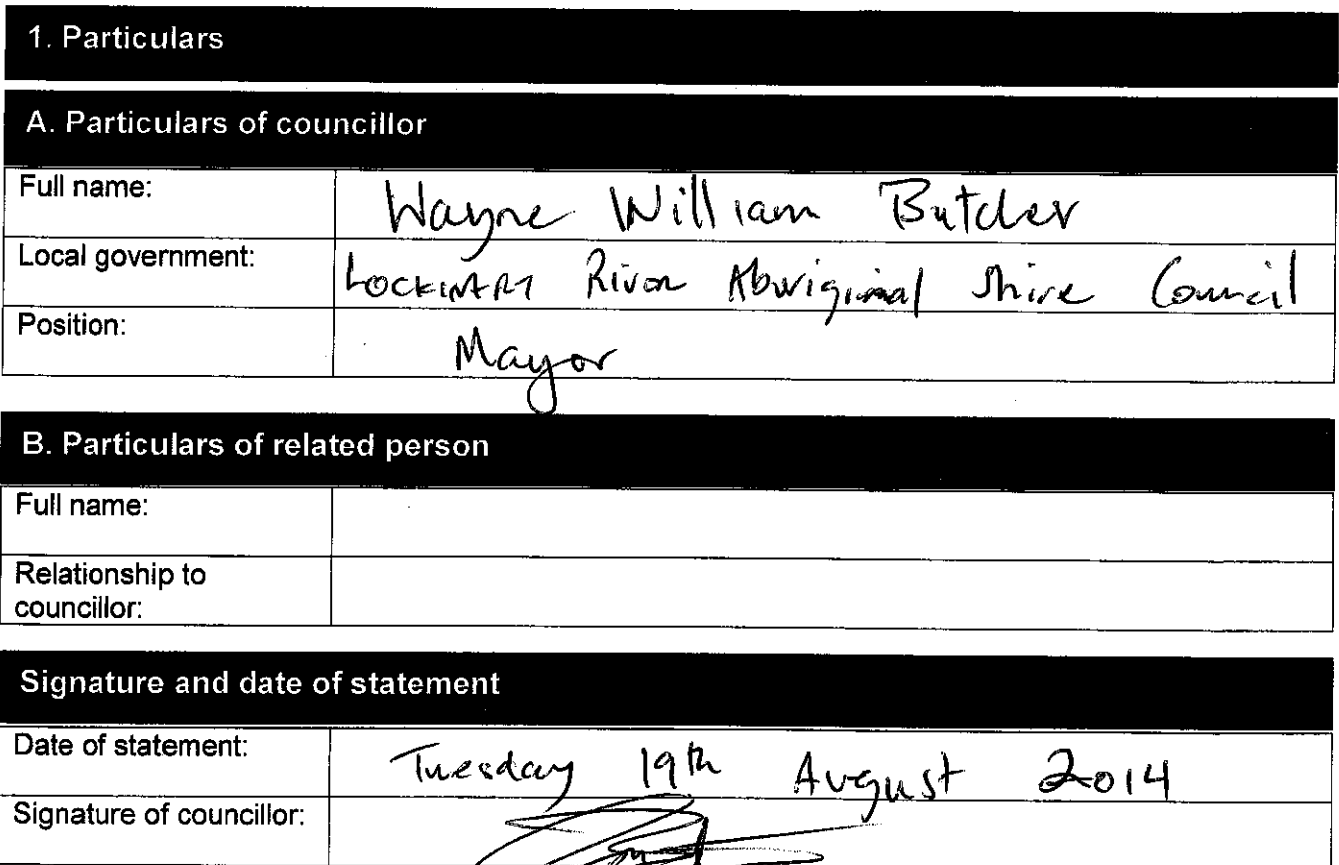 1. Particulars
A. Particulars of councillor
Full name: Wayne William Butcher
Local government: LOCKHART River Aboriginal Shire Council
Position: Mayor
B. Particulars of related person
Full name:
Relationship to
councillor:
Signature and date of statement
Date of statement: Tuesday 19th August 2014
Signature of councillor: